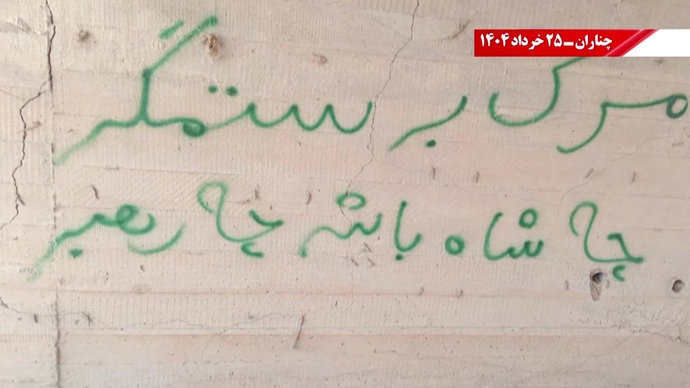 چناران - ۲۵ خرداد ۱۴۰۴
مرگ بر ستمگر
چه شاه باشه چه رهبر